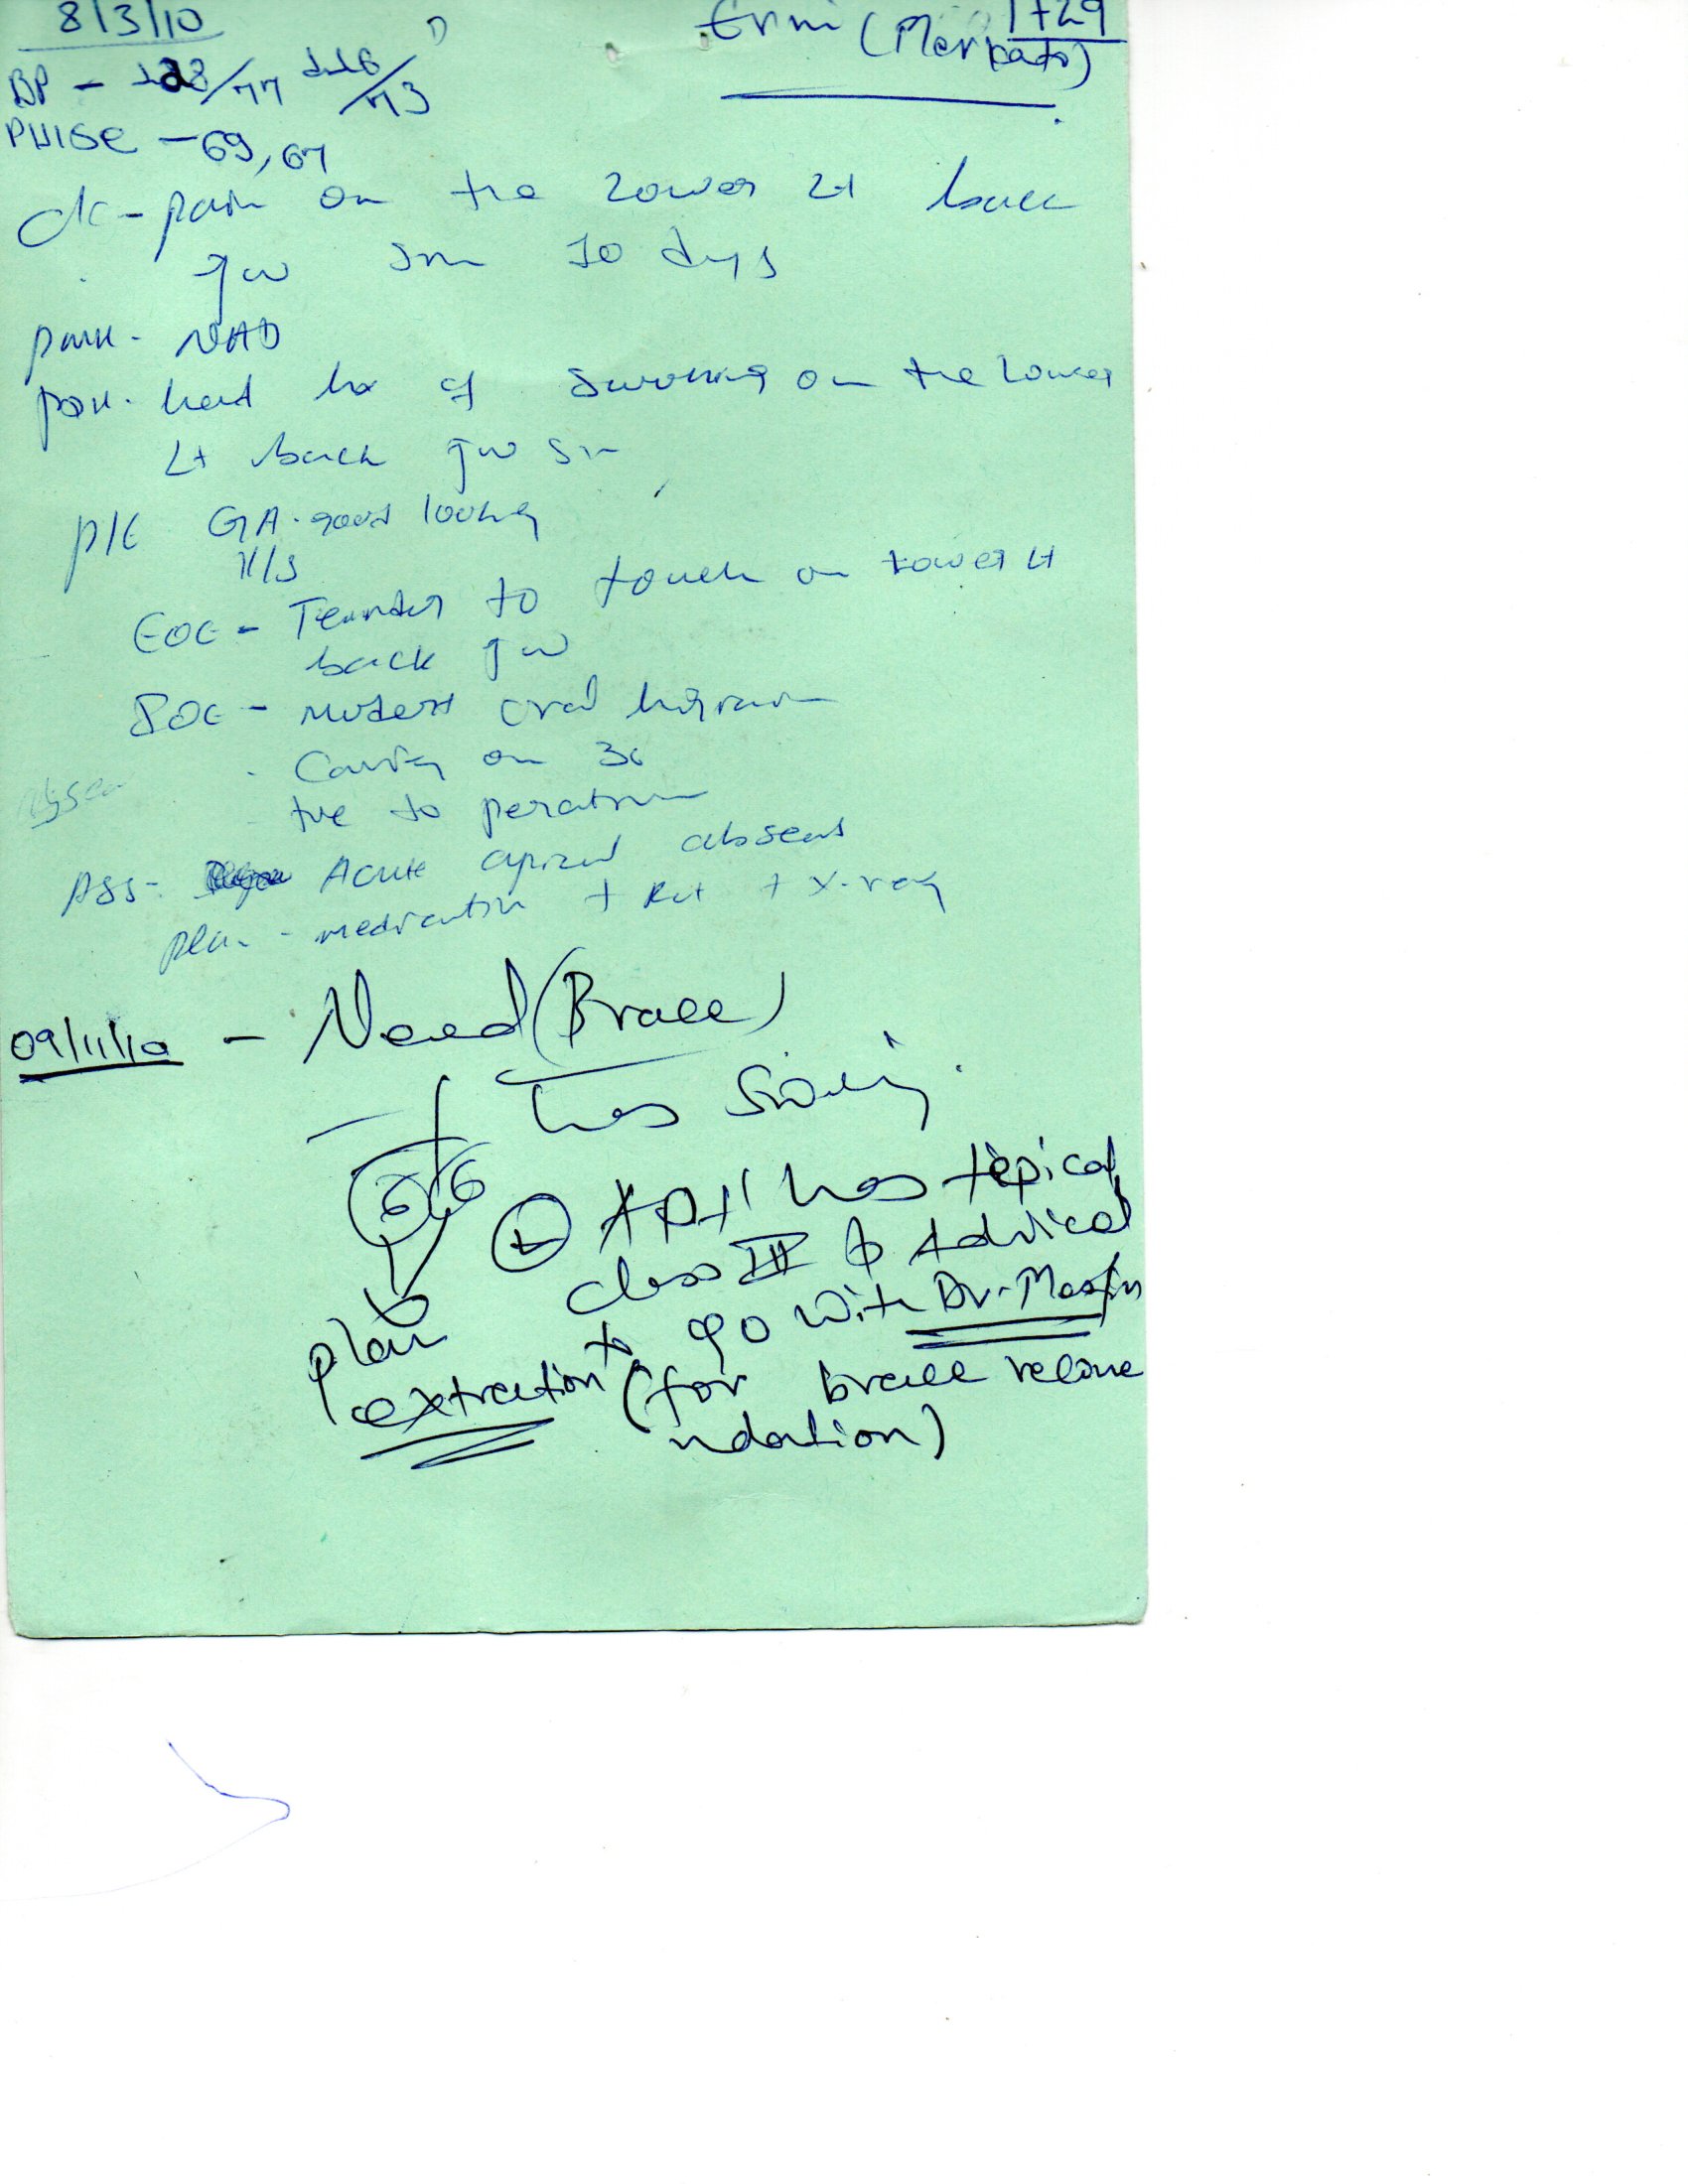 8/3/10
1729
Ermi (Merkato)
BP - 128/77 116/73
PUlse - 69, 67
c/c - pain on the Lower Lt back
jaw sin 10 days
pmH - NAD
pDH - had hx of swelling on the Lower
Lt back jaw sin
P/E GA - good looking
V/S
EOE - Tender to touch on Lower Lt
back jaw
IOE - modert oral
- Cavity on 36
tve to
Ass - Acute apical absess
plan - medication + Rct + X-ray
09/11/10 - Need (Brace)
has
6 6
② has tepical
class III & Advical
to go with Dr. Mesfin
plan
extraction (for brace recome
ndation)